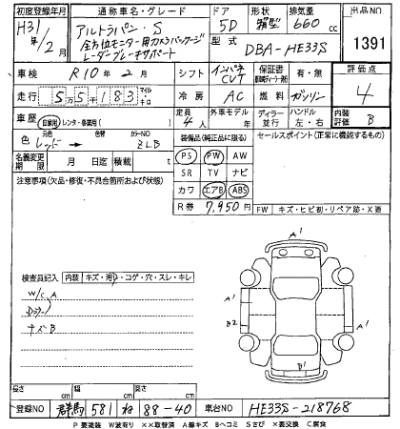 初度登録年月 通称車名・グレード ドア 形状 排気量 出品NO
H31年/2月 アルトラパン・S 5D 箱型 660cc 1391
全方位モニター用カメラパッケージ
レーダーブレーキサポート 型式 DBA-HE33S
車検 R10年2月 シフト インパネCVT 保証書 有・無 評価点
走行 55,183 冷房 AC 燃料 ガソリン 4
車歴 自家用・レンタ・ 定員 4人 外車モデル ディーラー 並行 ハンドル 左・右 内装評価 B
色 レッド 色替 カラーNO ZLB 装備品(純正品に限る) セールスポイント(正常に機能するもの)
名義変更期限 月 日迄 積載 t PS PW AW
注意事項(欠品・修復・不具合箇所および状態) SR TV ナビ
カワ エアB ABS
R券 7,950円 FW キズ・ヒビ割・リペア跡・X適
検査員記入 内装 キズ・汚・コゲ・穴・スレ・キレ
W/C A
キズB
A' A' A' B2 B'
長さ cm 幅 cm 高さ cm
登録NO 群馬 581 ね 88-40 車台NO HE33S-218768
P要塗装 W波有り XX取替済 A線キズ Bヘコミ Sさび X要交換 C腐食